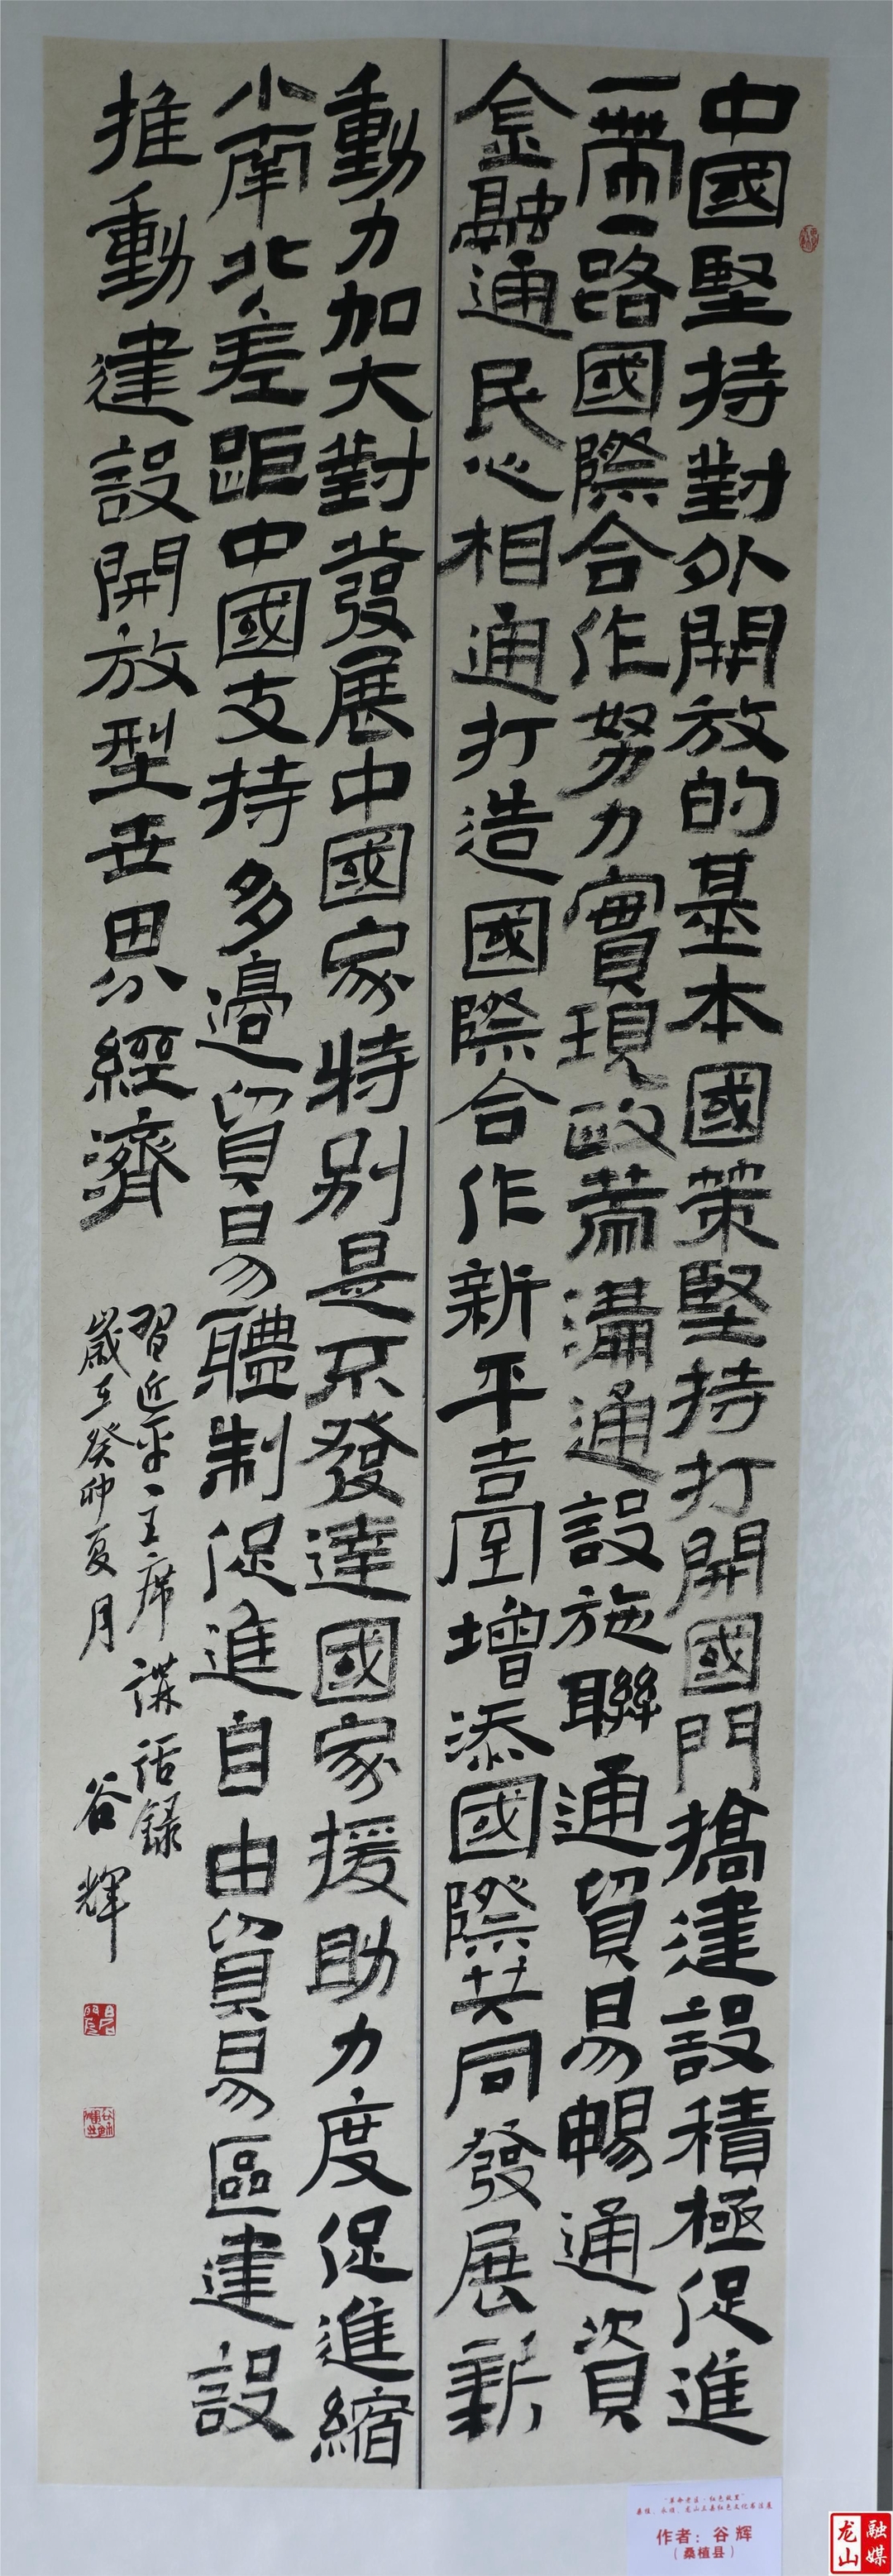 中國堅持對外開放的基本國策堅持打開國門搞建設積極促進
一帶一路國際合作努力實現政策溝通設施聯通貿易暢通資
金融通民心相通打造國際合作新平臺增添國際共同發展新
動力加大對發展中國家特别是不發達國家援助力度促進縮
小南北差距中國支持多邊貿易體制促進自由貿易區建設
推動建設開放型世界經濟
習近平主席講話録
歲在癸卯夏月 谷輝
“革命老区·红色故里”
桑植、永顺、龙山三县红色文化书法展
作者：谷辉
（桑植县）
龙山融媒